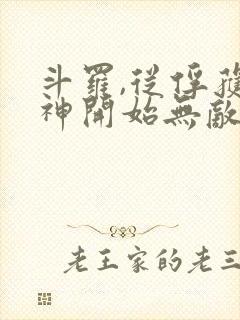 斗羅,從俘獲
神開始無敵
老王家的老三